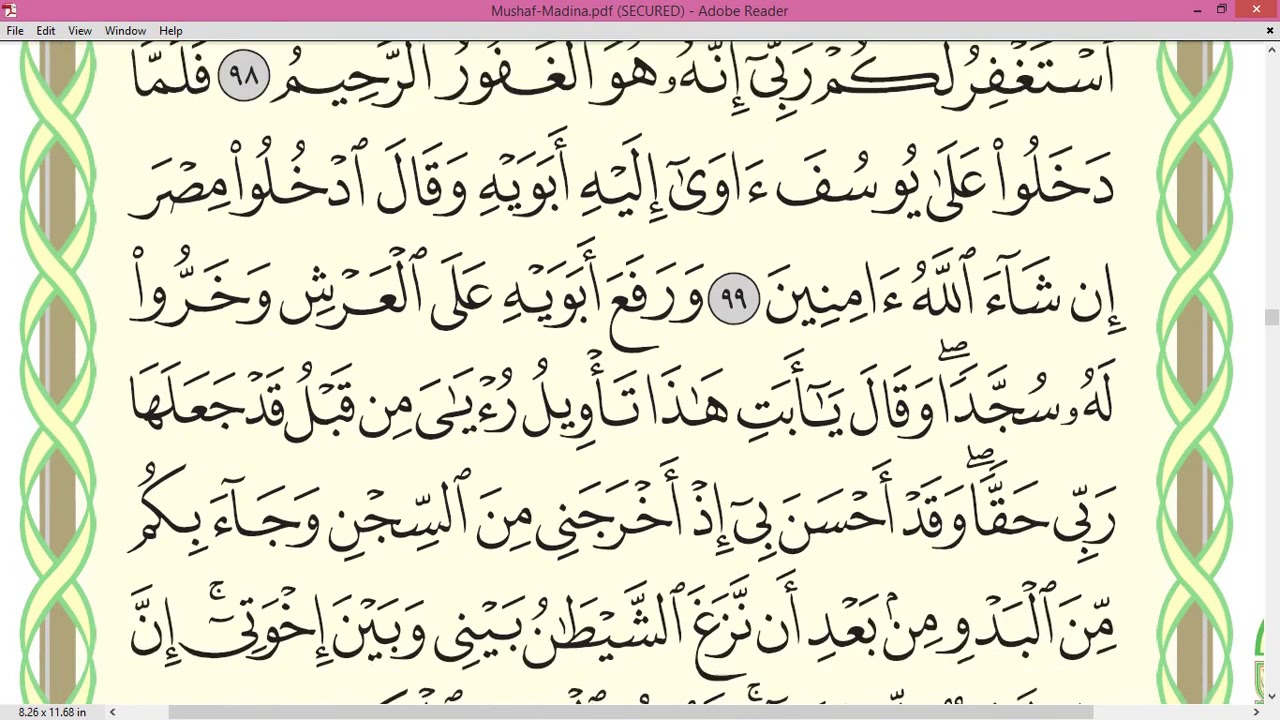 Mushaf-Madina.pdf (SECURED) - Adobe Reader
File Edit View Window Help
أَسۡتَغۡفِرُ لَكُمۡ رَبِّيٓ إِنَّهُۥ هُوَ ٱلۡغَفُورُ ٱلرَّحِيمُ ٩٨ فَلَمَّا
دَخَلُواْ عَلَىٰ يُوسُفَ ءَاوَىٰٓ إِلَيۡهِ أَبَوَيۡهِ وَقَالَ ٱدۡخُلُواْ مِصۡرَ
إِن شَآءَ ٱللَّهُ ءَامِنِينَ ٩٩ وَرَفَعَ أَبَوَيۡهِ عَلَى ٱلۡعَرۡشِ وَخَرُّواْ
لَهُۥ سُجَّدٗاۖ وَقَالَ يَٰٓأَبَتِ هَٰذَا تَأۡوِيلُ رُءۡيَٰيَ مِن قَبۡلُ قَدۡ جَعَلَهَا
رَبِّي حَقّٗاۖ وَقَدۡ أَحۡسَنَ بِيٓ إِذۡ أَخۡرَجَنِي مِنَ ٱلسِّجۡنِ وَجَآءَ بِكُم
مِّنَ ٱلۡبَدۡوِ مِنۢ بَعۡدِ أَن نَّزَغَ ٱلشَّيۡطَٰنُ بَيۡنِي وَبَيۡنَ إِخۡوَتِيٓۚ إِنَّ
8.26 x 11.68 in